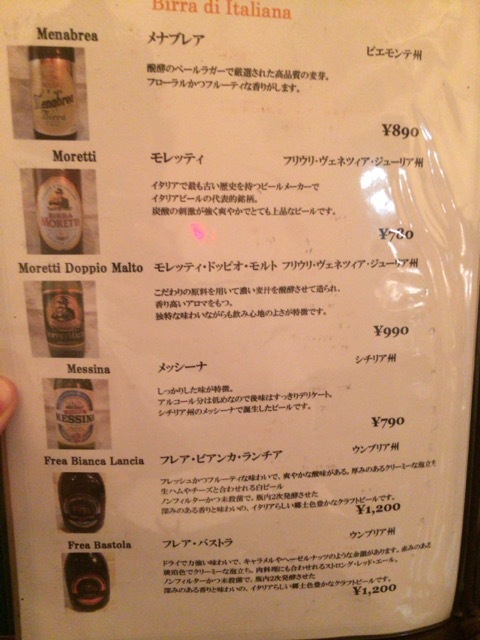 Birra di Italiana
Menabrea メナブレア ピエモンテ州
醗酵のペールラガーで厳選された高品質の麦芽。
フローラルかつフルーティな香りがします。
¥890
Moretti モレッティ フリウリ・ヴェネツィア・ジューリア州
イタリアで最も古い歴史を持つビールメーカーで
イタリアビールの代表的銘柄。
炭酸の刺激が強く爽やかでとても上品なビールです。
BIRRA
MORETTI
¥780
Moretti Doppio Malto モレッティ・ドッピオ・モルト フリウリ・ヴェネツィア・ジューリア州
こだわりの原料を用いて濃い麦汁を醗酵させて造られ、
香り高いアロマをもつ。
独特な味わいながらも飲み心地のよさが特徴です。
¥990
Messina メッシーナ シチリア州
しっかりした味が特徴。
アルコール分は低めなので後味はすっきりデリケート。
シチリア州のメッシーナで誕生したビールです。
MESSINA
¥790
Frea Bianca Lancia フレア・ビアンカ・ランチア ウンブリア州
フレッシュかつフルーティな味わいで、爽やかな酸味がある。厚みのあるクリーミーな泡立ち
生ハムやチーズと合わせれる白ビール
ノンフィルターかつ未殺菌で、瓶内2次発酵させた
深みのある香りと味わいの、イタリアらしい郷土色豊かなクラフトビールです。
¥1,200
Frea Bastola フレア・バストラ ウンブリア州
ドライで力強い味わいで、キャラメルやヘーゼルナッツのような余韻があります。赤みのある
琥珀色でクリーミーな泡立ち、肉料理にも合わせれるストロング・レッド・エール。
ノンフィルターかつ未殺菌で、瓶内2次発酵させた
深みのある香りと味わいの、イタリアらしい郷土色豊かなクラフトビールです。
¥1,200